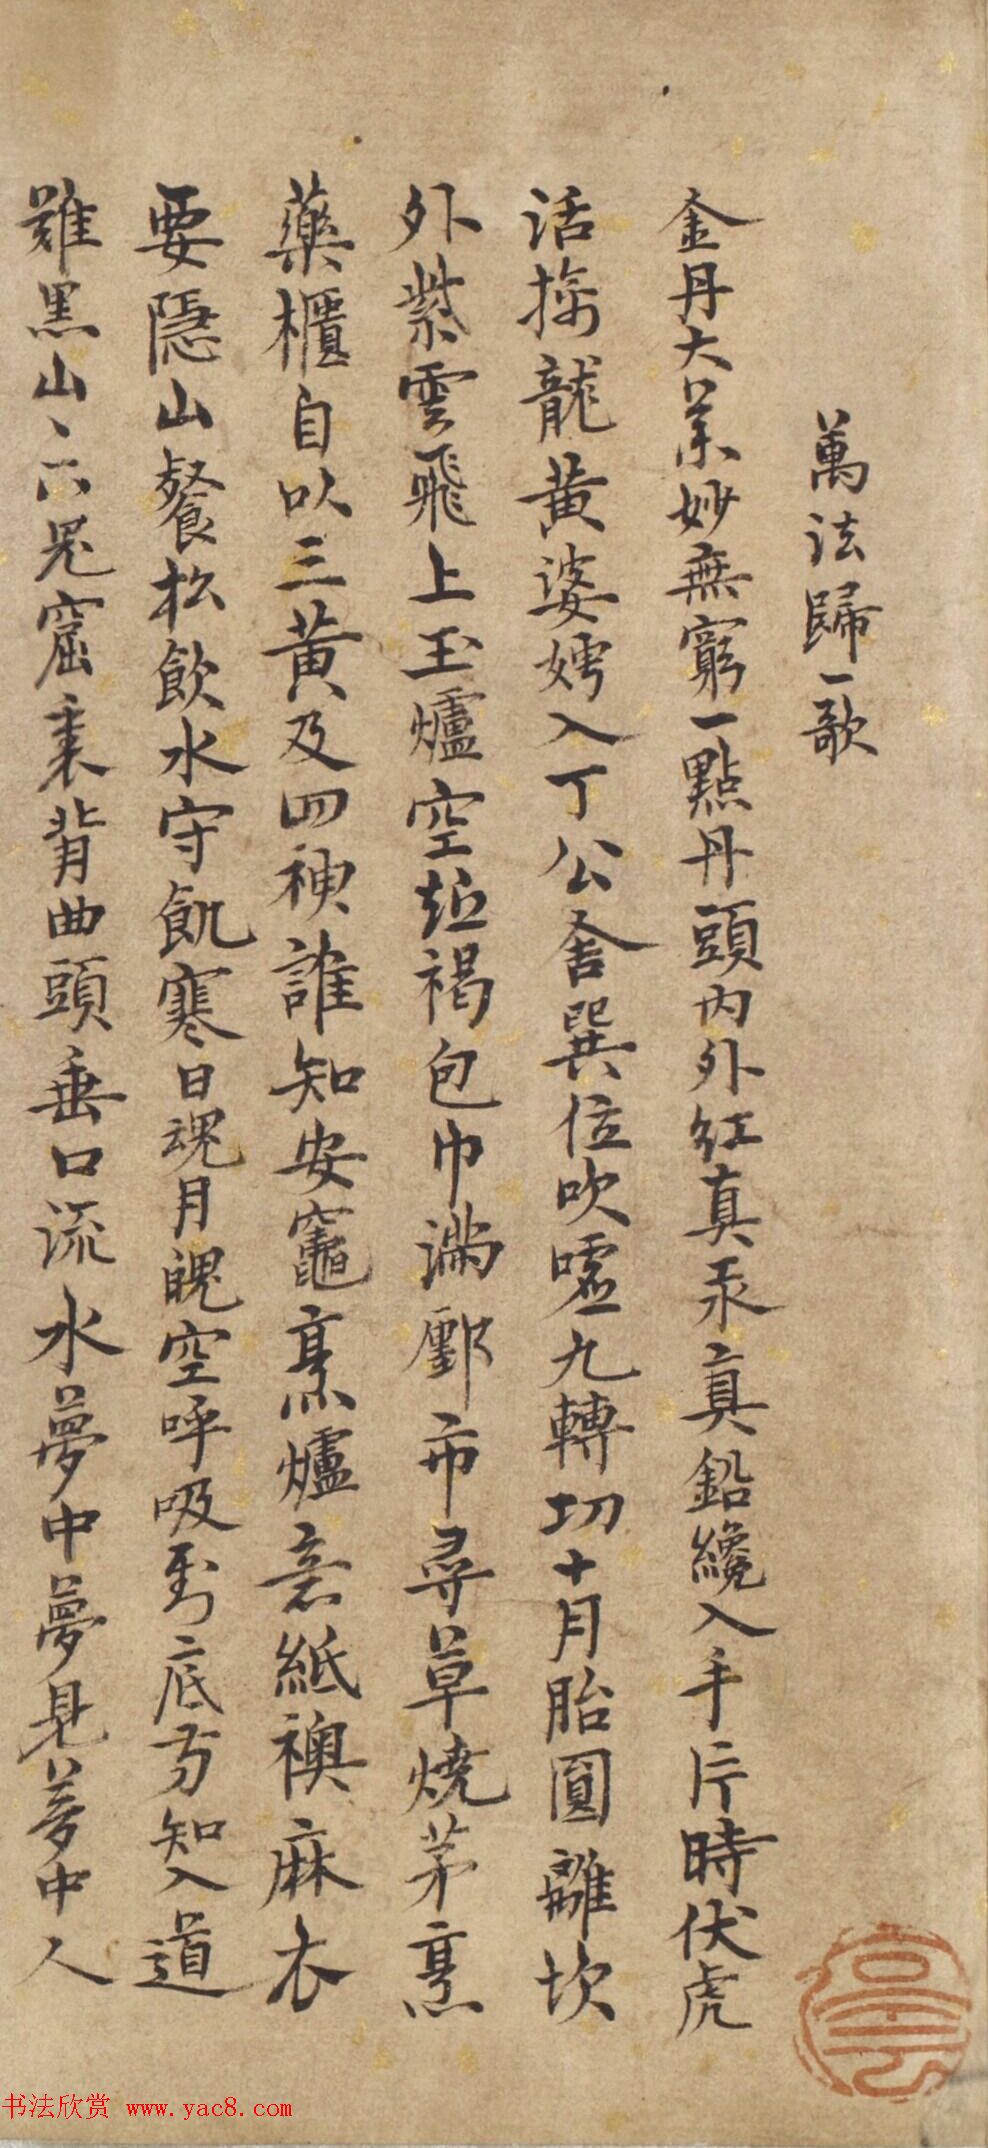 萬法歸一歌
金丹大葉妙無窮一點丹頭內外紅真汞真鉛纔入手片時伏虎
活擒龍黃婆娉入丁公舍巽位吹噓九轉功十月胎圓離坎
外紫雲飛上玉爐空短褐包巾滿鄽市尋草燒茅烹
藥櫃自以三黃及四神誰知安竈烹爐意紙襖麻衣
要隱山餐松飲水守飢寒日魂月魄空呼吸到底方知入道
難黑山丶下鬼窟裏背曲頭垂口流水夢中夢見夢中人
书法欣赏 www.yac8.com